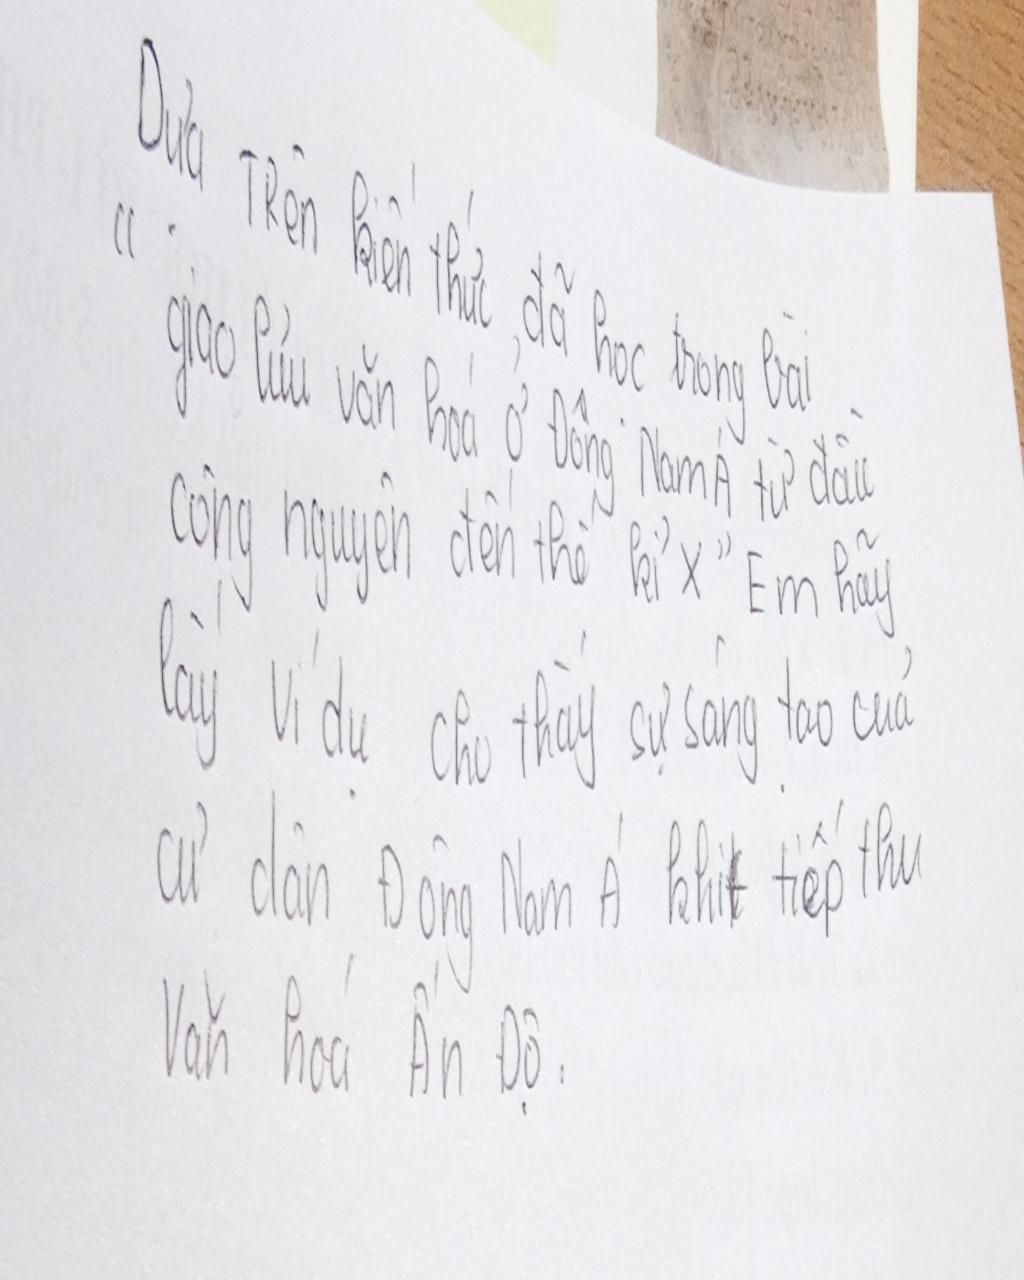 Dựa TRên kiến thức đã học trong bài
"giao lưu văn hoá ở Đông Nam Á từ đầu
công nguyên đến thế kỉ X" Em hãy
lấy ví dụ cho thấy sự sáng tạo của
cư dân Đông Nam Á khi tiếp thu
Văn hoá Ấn Độ.